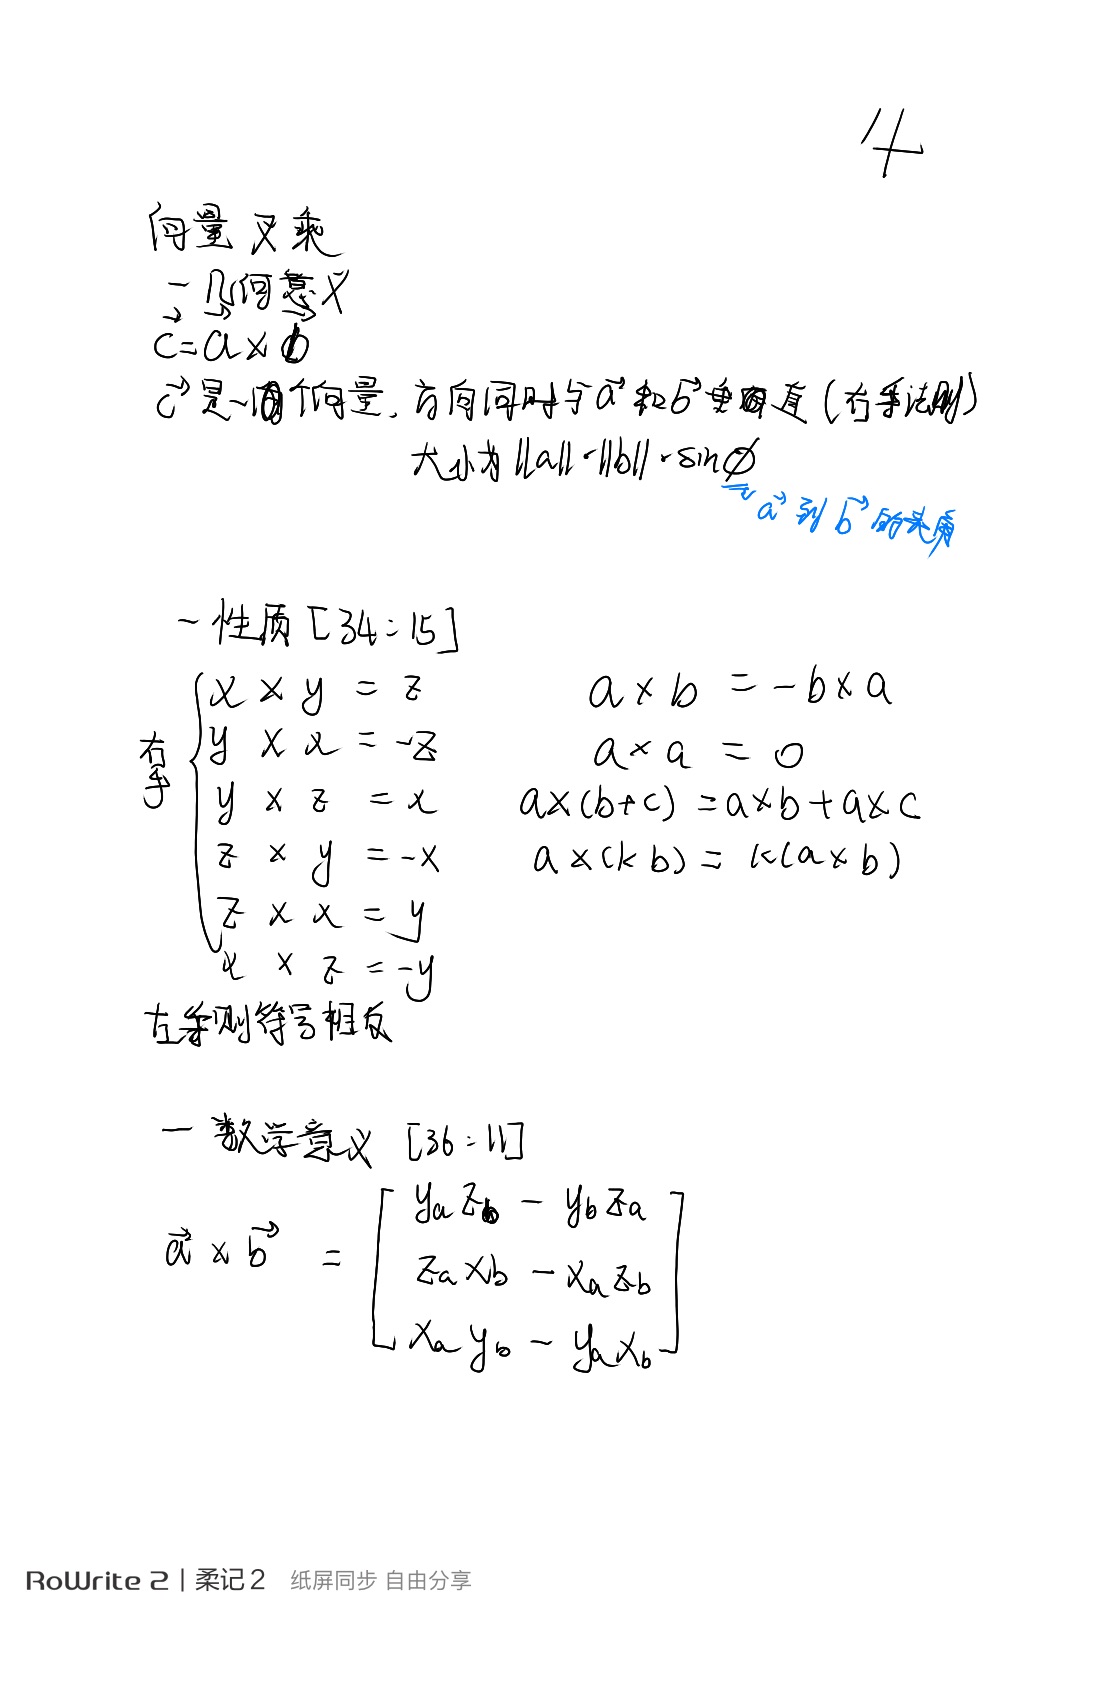 4
向量叉乘
- 几何意义
c⃗ = a⃗ × b⃗
c⃗是一个向量, 方向同时与 a⃗ 和 b⃗ 垂直 (右手法则)
大小为 ||a||·||b||·sinϕ
a⃗ 到 b⃗ 的夹角
- 性质 [34:15]
右手
x × y = z
y × x = -z
y × z = x
z × y = -x
z × x = y
x × z = -y
a × b = -b × a
a × a = 0
a×(b+c) = a×b + a×c
a ×(k b) = k(a × b)
左手则符号相反
- 数学意义 [36:11]
a⃗ × b⃗ =
[ yₐ z_b - y_b zₐ
zₐ x_b - xₐ z_b
xₐ y_b - yₐ x_b ]
RoWrite 2 | 柔记 2 纸屏同步 自由分享